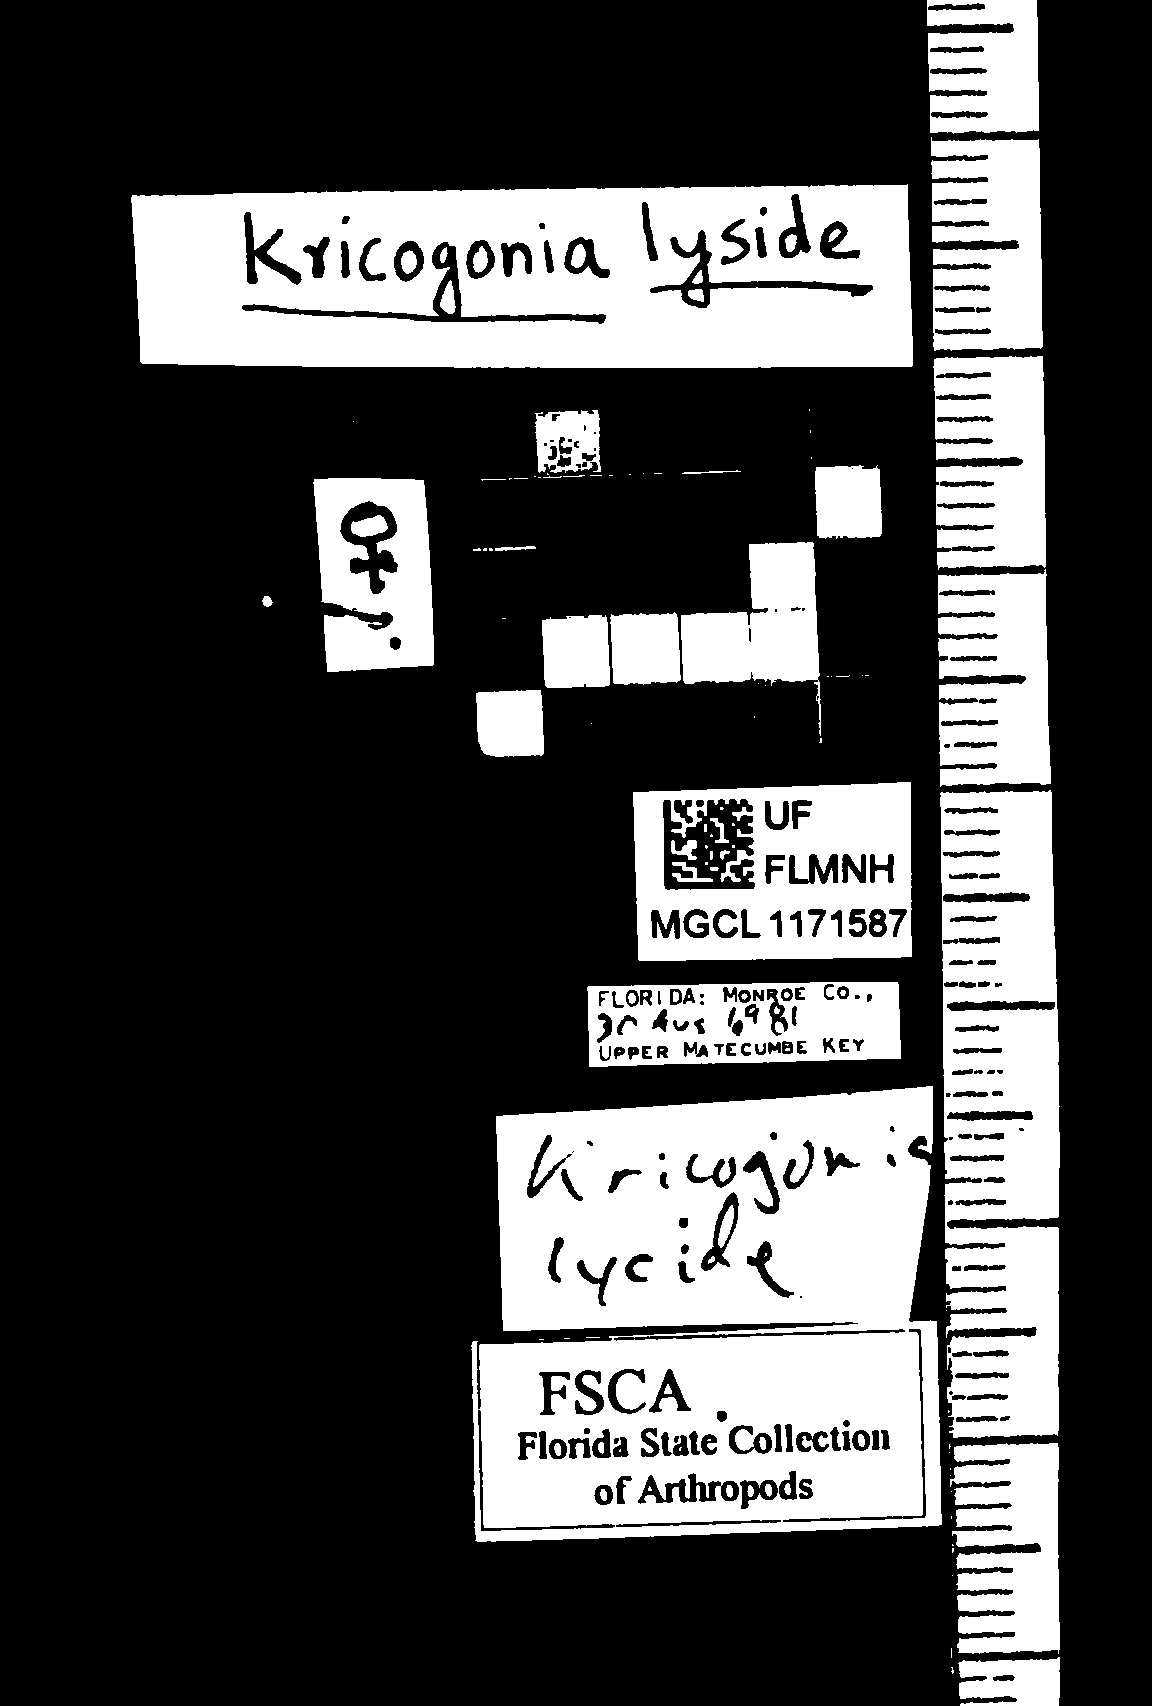 Kricogonia lyside
♀
UF
FLMNH
MGCL 1171587
FLORIDA: MONROE CO.,
30 Aug 1981
UPPER MATECUMBE KEY
Kricogonia
lycide
FSCA
Florida State Collection
of Arthropods